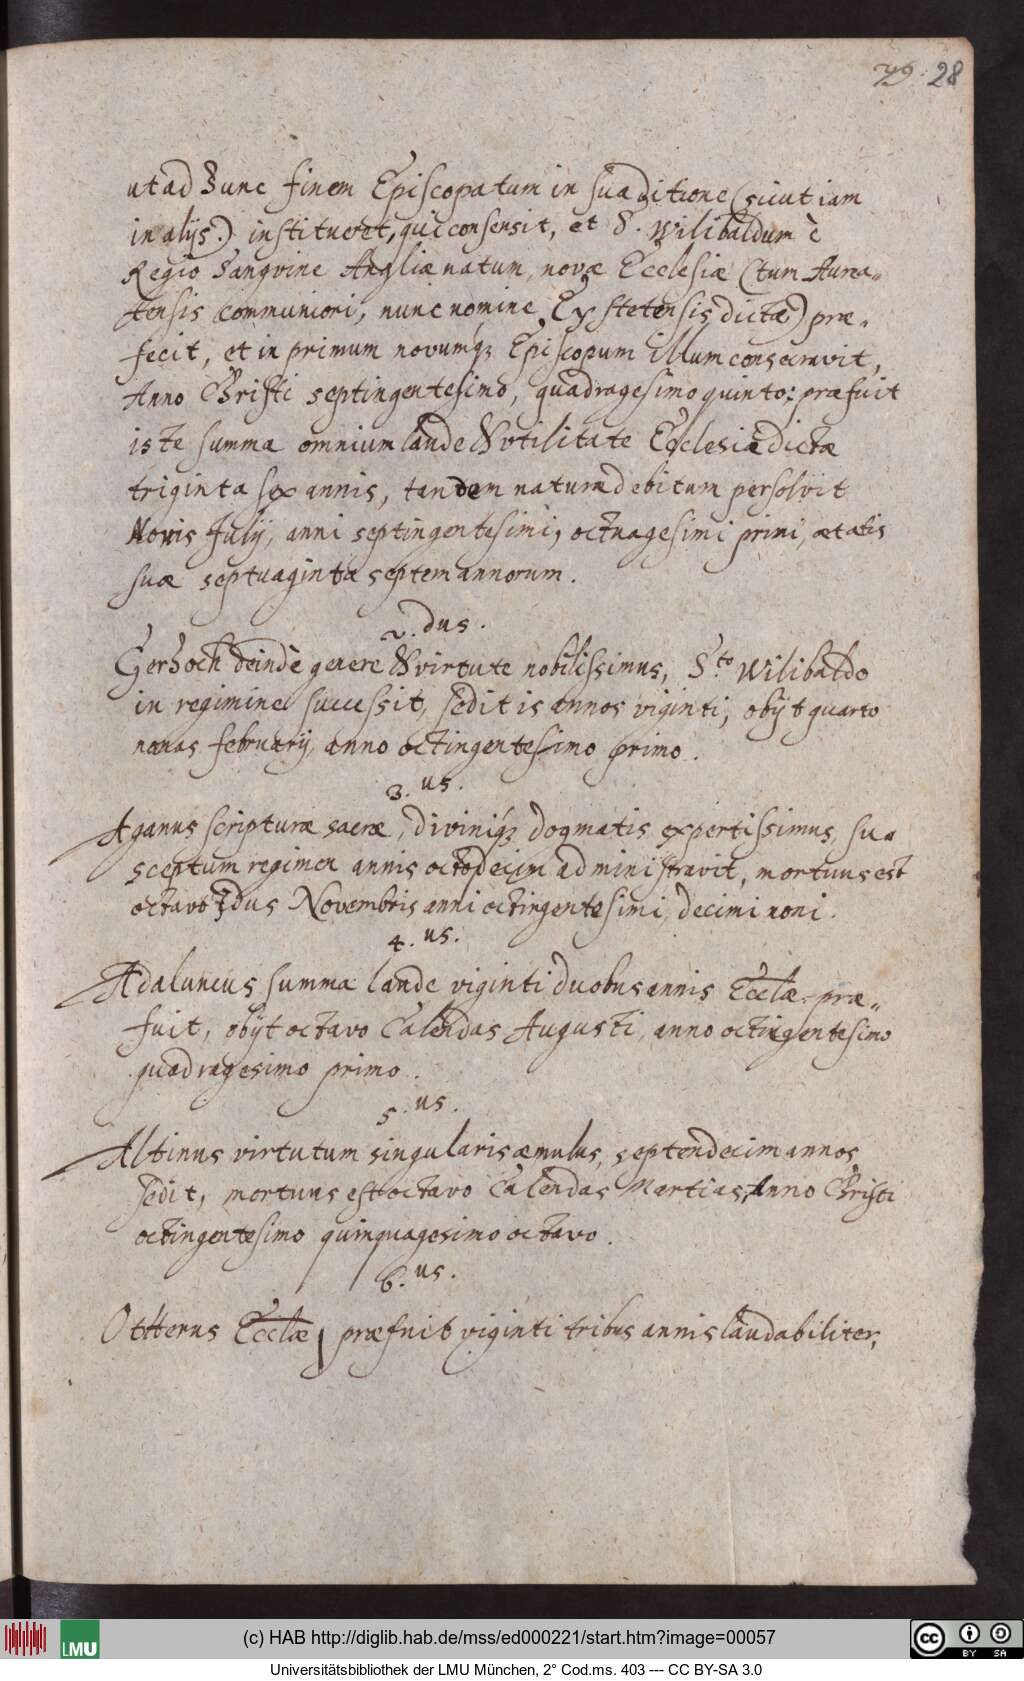 79. 28
ut ad hunc finem Episcopatum in sua ditione (sicut iam
in alijs.) institueret, qui consensit, et S. Wilibaldum è
Regio Sangvine Angliæ natum, novæ Ecclesiæ (tum Aurea-
tensis communiori, nunc nomine Eystetensis dictæ) præ-
fecit, et in primum novumq́z Episcopum illum consecravit,
Anno Christi septingentesimo, quadragesimo quinto: præfuit
iste summa omnium laude & vtilitate Ecclesiæ dictæ
triginta sex annis, tandem naturæ debitum persolvit
Nonis Julij, anni septingentesimi, octuagesimi primi, ætatis
suæ septuaginta septem annorum.
2. dus.
Gerhoch deindè genere & virtute nobilissimus, S.to Wilibaldo
in regimine successit, sedit is annos viginti, obijt quarto
nonas februarij anno octingentesimo primo.
3. us.
Aganus scripturæ sacræ, diviniq́z dogmatis expertissimus, su
sceptum regimen annis octodecim administravit, mortuus est
octavo Idus Novembris anni octingentesimi, decimi noni.
4. us.
Adaluncus summa laude viginti duobus annis Ecclæ. præ-
fuit, obijt octavo Calendas Augusti, anno octingentesimo
quadragesimo primo.
5. us.
Altinus virtutum singularis æmulus, septendecim annos
sedit, mortuus est octavo Calendas Martias, Anno Christi
octingentesimo quinquagesimo octavo.
6. us.
Ottkerus Ecclæ præfuit viginti tribus annis laudabiliter,
LMU
(c) HAB http://diglib.hab.de/mss/ed000221/start.htm?image=00057
cc BY SA
Universitätsbibliothek der LMU München, 2° Cod.ms. 403 --- CC BY-SA 3.0